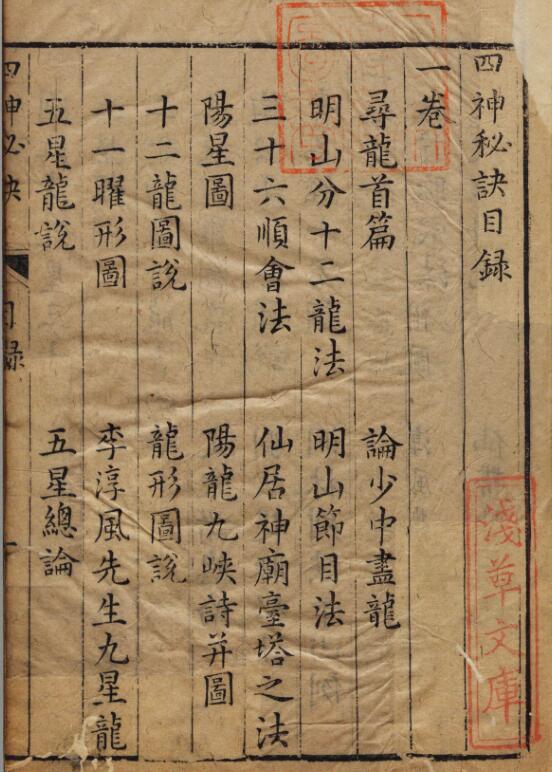 四神秘訣目録
一卷
尋龍首篇 論少中盡龍
明山分十二龍法 明山節目法
三十六順會法 仙居神廟臺塔之法
陽星圖 陽龍九峽詩并圖
十二龍圖說 龍形圖說
十一曜形圖 李淳風先生九星龍
五星龍說 五星總論
四神秘决 目録
淺草文庫